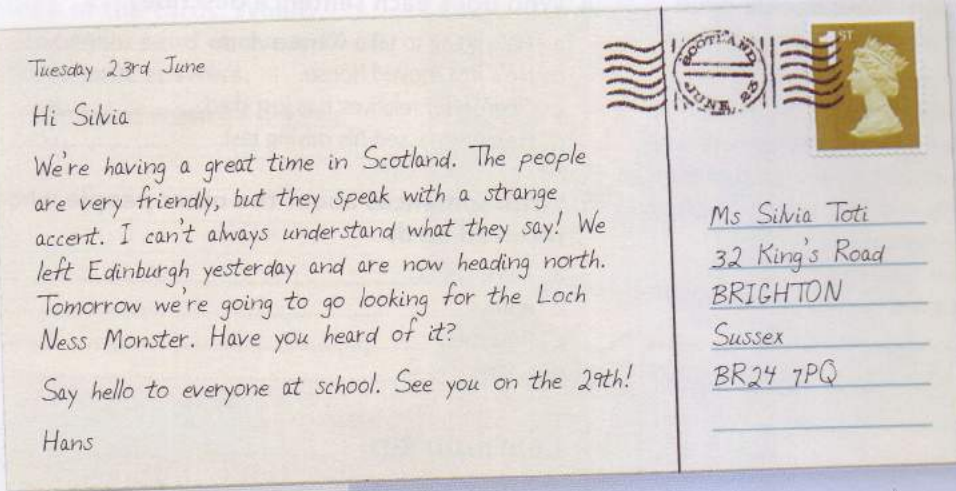 Tuesday 23rd June
Hi Silvia
We're having a great time in Scotland. The people
are very friendly, but they speak with a strange
accent. I can't always understand what they say! We
left Edinburgh yesterday and are now heading north.
Tomorrow we're going to go looking for the Loch
Ness Monster. Have you heard of it?
Say hello to everyone at school. See you on the 29th!
Hans
SCOTLAND
JUNE 23
1ST
Ms Silvia Toti
32 King's Road
BRIGHTON
Sussex
BR24 7PQ